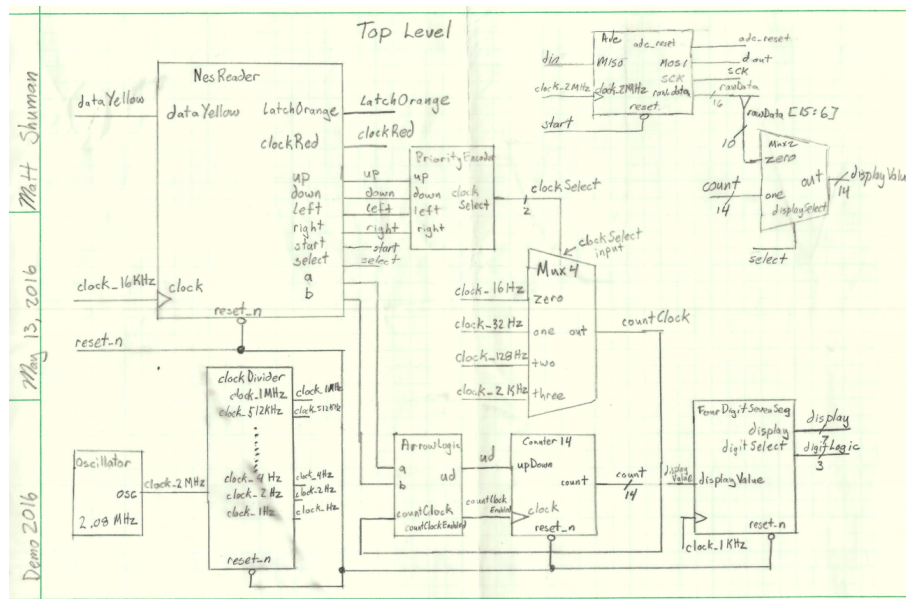 Top Level
Matt Shuman
May 13, 2016
Demo 2016
NesReader
dataYellow
dataYellow
LatchOrange
LatchOrange
clockRed
clockRed
up
up
down
down
left
left
right
right
start
start
select
select
a
b
clock_16KHz
clock
reset_n
reset_n
PriorityEncoder
up
down
left
right
clock
Select
clockSelect
2
clockSelect
input
Mux4
clock_16Hz
zero
clock_32Hz
one
out
countClock
clock_128Hz
two
clock_2KHz
three
Adc
adc_reset
adc_reset
din
MISO
MOSI
dout
SCK
SCK
clock_2MHz
clock_2MHz
rawdata
rawData
16
reset
start
rawData [15:6]
10
Mux2
zero
count
14
one
out
displayValue
14
displaySelect
select
Oscillator
osc
2.08 MHz
clock_2MHz
clockDivider
clock_1MHz
clock_1MHz
clock_512KHz
clock_512KHz
clock_4Hz
clock_4Hz
clock_2Hz
clock_2Hz
clock_1Hz
clock_Hz
reset_n
ArrowLogic
a
b
ud
ud
countClock
countClockEnabled
countClock
Enabled
Counter14
upDown
count
count
14
clock
reset_n
FourDigitSevenSeg
display
display
7
digitSelect
digitLogic
3
display
Value
displayValue
reset_n
clock_1KHz